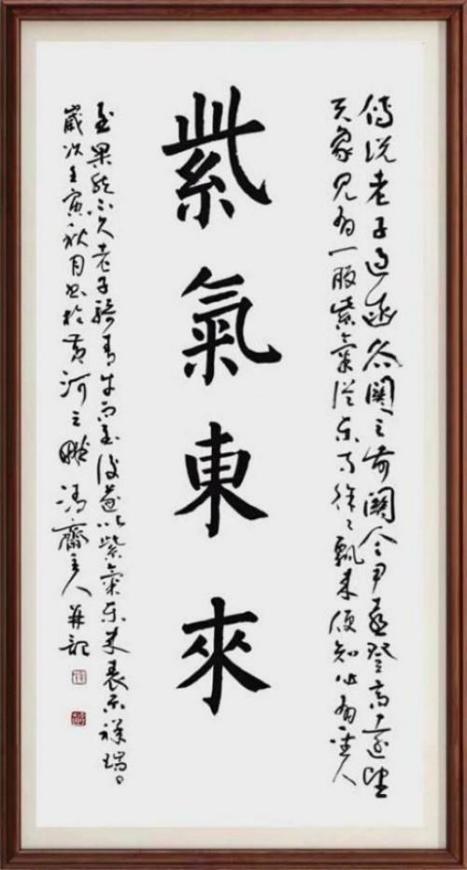 傳說老子過函谷關之前關令尹喜登高遠望
天象見有一股紫氣從東方徐徐飄來便知必有聖人
紫氣東來
至果然不久老子騎青牛而至後遂以紫氣東來表示祥瑞。
歲次壬寅秋月書於黃河之畔馮齋主人并記